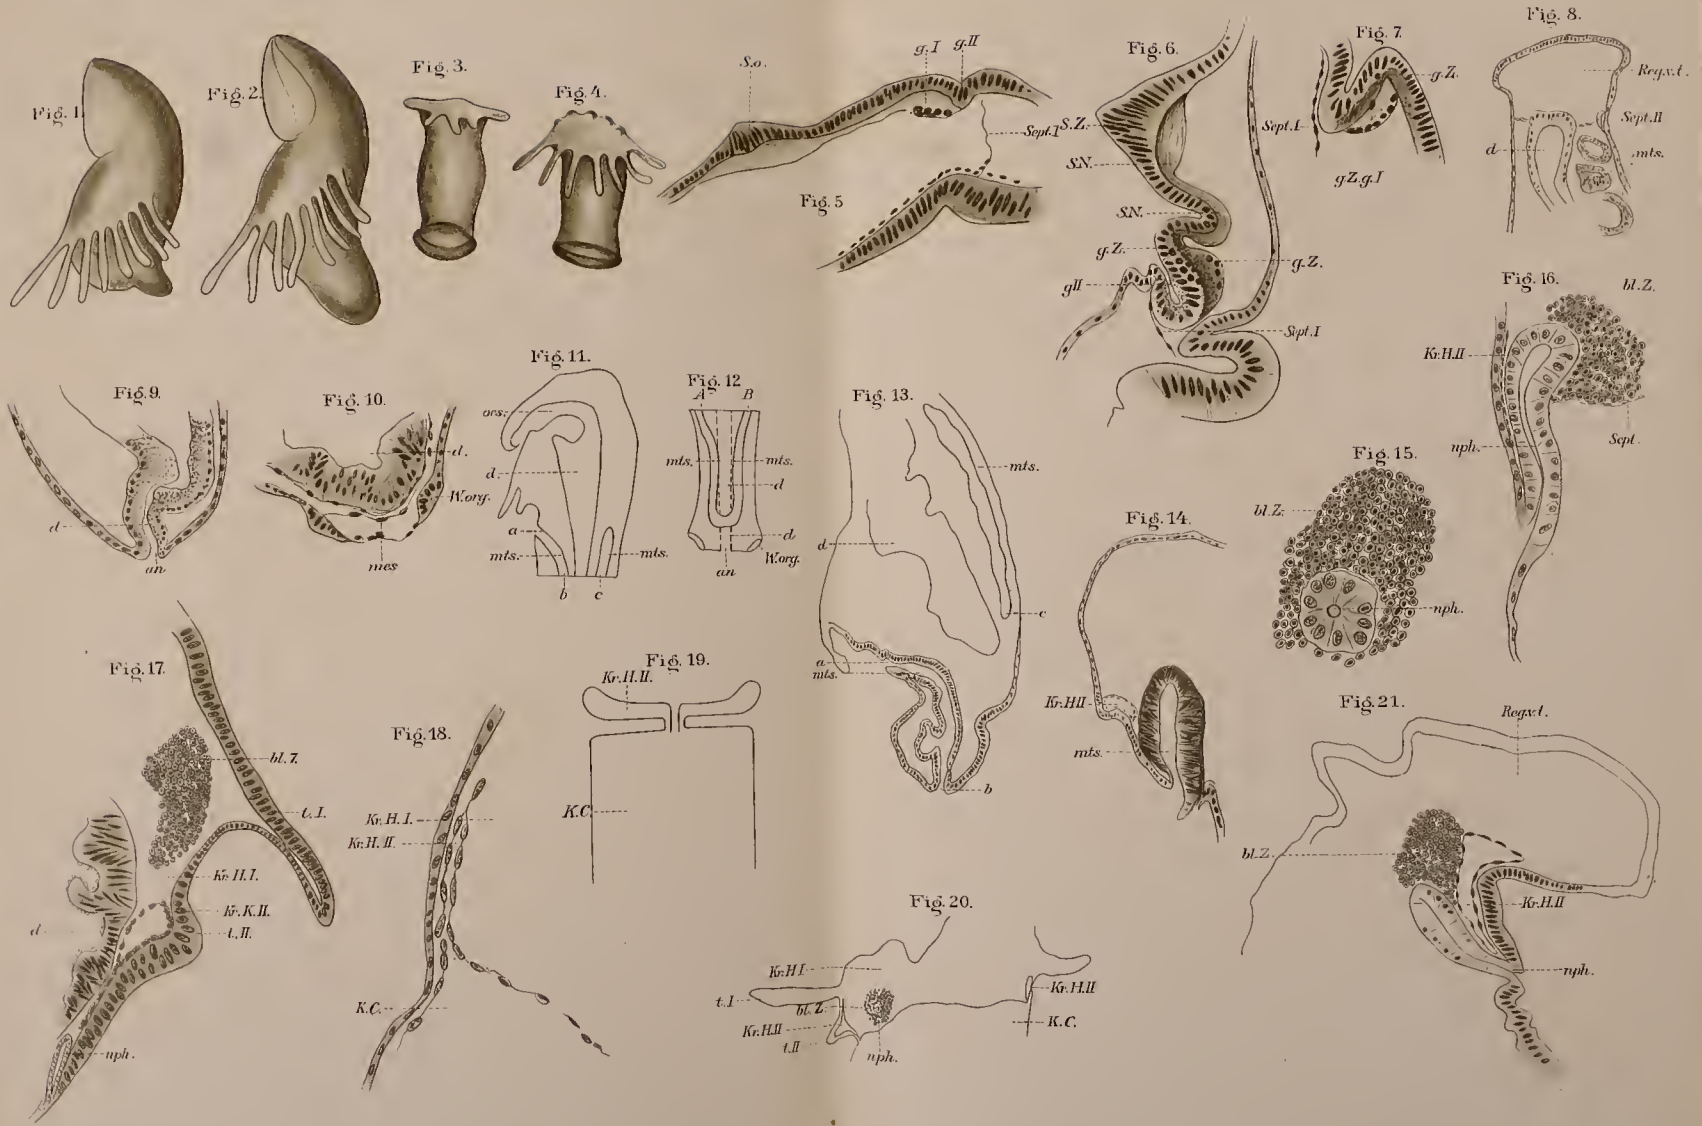 Fig. 1.
Fig. 2.
Fig. 3.
Fig. 4.
S.o.
g.I
g.II
Sept.I
Fig. 5
Fig. 6.
S.Z.
S.N.
S.N.
g.Z.
g.Z.
gII
Sept.I
Fig. 7.
g.Z.
Sept.I
g.Z.g.I
Fig. 8.
Reg.v.t.
Sept.II
d
mts.
Fig. 9.
d
an
Fig. 10.
d.
W.org.
mes
Fig. 11.
oes.
d.
a
mts.
mts.
b
c
Fig. 12
A
B
mts.
mts.
d
d
W.org.
an
Fig. 13.
mts.
d
c
a
mts.
b
Fig. 14.
Kr.H.II
mts.
Fig. 15.
bl.Z.
nph.
Fig. 16.
bl.Z.
Kr.H.II
nph.
Sept.
Fig. 17.
bl.Z
t.I.
Kr.H.I.
Kr.K.II.
t.II.
d
nph.
Fig. 18.
Kr.H.I.
Kr.H.II.
K.C.
Fig. 19.
Kr.H.II.
K.C.
Fig. 20.
Kr.H I
t.I
bl.Z.
Kr.H.II
t.II
nph.
Kr.H.II
K.C.
Fig. 21.
Reg.v.t.
bl.Z.
Kr.H.II
nph.